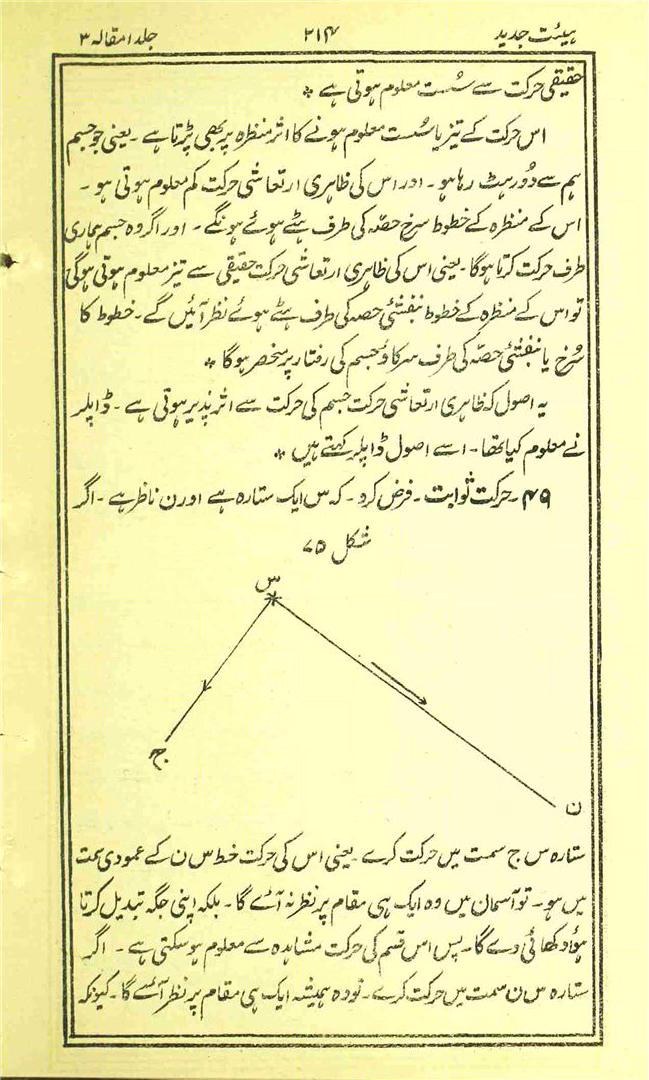 ہیئت جدید ۲۱۴ جلد ۱ مقالہ ۳
حقیقی حرکت سے سُست معلوم ہوتی ہے *
اس حرکت کے تیز یا سُست معلوم ہونے کا اثر منظرہ پر بھی پڑتا ہے ۔ یعنی جو جسم
ہم سے دُور ہٹ رہا ہو ۔ اور اس کی ظاہری ارتعاشی حرکت کم معلوم ہوتی ہو ۔
اس کے منظرہ کے خطوط سرخ حصّہ کی طرف ہٹے ہوئے ہونگے ۔ اور اگر وہ جسم ہماری
طرف حرکت کرتا ہوگا ۔ یعنی اس کی ظاہری ارتعاشی حرکت حقیقی سے تیز معلوم ہوتی ہوگی
تو اس کے منظرہ کے خطوط بنفشئی حصہ کی طرف ہٹے ہوئے نظر آئیں گے ۔ خطوط کا
سُرخ یا بنفشئی حصّہ کی طرف سرکاؤ جسم کی رفتار پر منحصر ہوگا *
یہ اصول کہ ظاہری ارتعاشی حرکت جسم کی حرکت سے اثر پذیر ہوتی ہے ۔ ڈاپلر
نے معلوم کیا تھا ۔ اسے اصول ڈاپلر کہتے ہیں *
۴۹ ۔ حرکت ثوابت ۔ فرض کرو ۔ کہ س ایک ستارہ ہے اور ن ناظر ہے ۔ اگر
شکل ۷۵
س
ج
ن
ستارہ س ج سمت میں حرکت کرے ۔ یعنی اس کی حرکت خط س ن کے عمودی سمت
میں ہو ۔ تو آسمان میں وہ ایک ہی مقام پر نظر نہ آئے گا ۔ بلکہ اپنی جگہ تبدیل کرتا
ہؤا دکھائی دے گا ۔ پس اس قسم کی حرکت مشاہدہ سے معلوم ہو سکتی ہے ۔ اگر
ستارہ س ن سمت میں حرکت کرے ۔ تو وہ ہمیشہ ایک ہی مقام پر نظر آئے گا ۔ کیونکہ